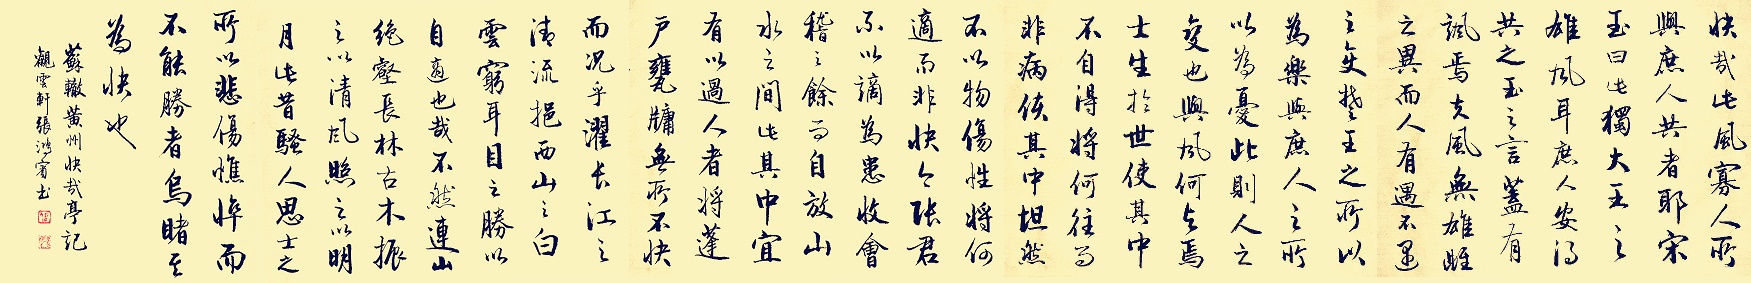 快哉此風寡人所
與庶人共者耶宋
玉曰此獨大王之
雄風耳庶人安得
共之玉之言蓋有
諷焉夫風無雄雌
之異而人有遇不遇
之變楚王之所以
為樂與庶人之所
以為憂此則人之
變也與風何與焉
士生於世使其中
不自得將何往而
非病使其中坦然
不以物傷性將何
適而非快今張君
不以謫為患收會
稽之餘而自放山
水之間此其中宜
有以過人者將蓬
戶甕牖無所不快
而況乎濯長江之
清流挹西山之白
雲窮耳目之勝以
自適也哉不然連山
絕壑長林古木振
之以清風照之以明
月此皆騷人思士之
所以悲傷憔悴而
不能勝者烏睹其
為快也
蘇轍黃州快哉亭記
觀雲軒張鴻書